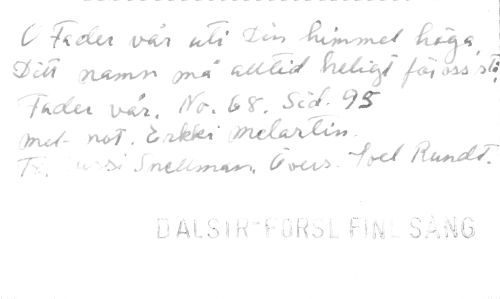 O Fader vår uti Din himmel höga,
Ditt namn må alltid heligt för oss stå
Fader vår. No. 68. Sid. 95
mel. not. Erkki Melartin.
Snellman. Övers. Joel Rundt.
DALSTR FÖRSL FINL SÅNG